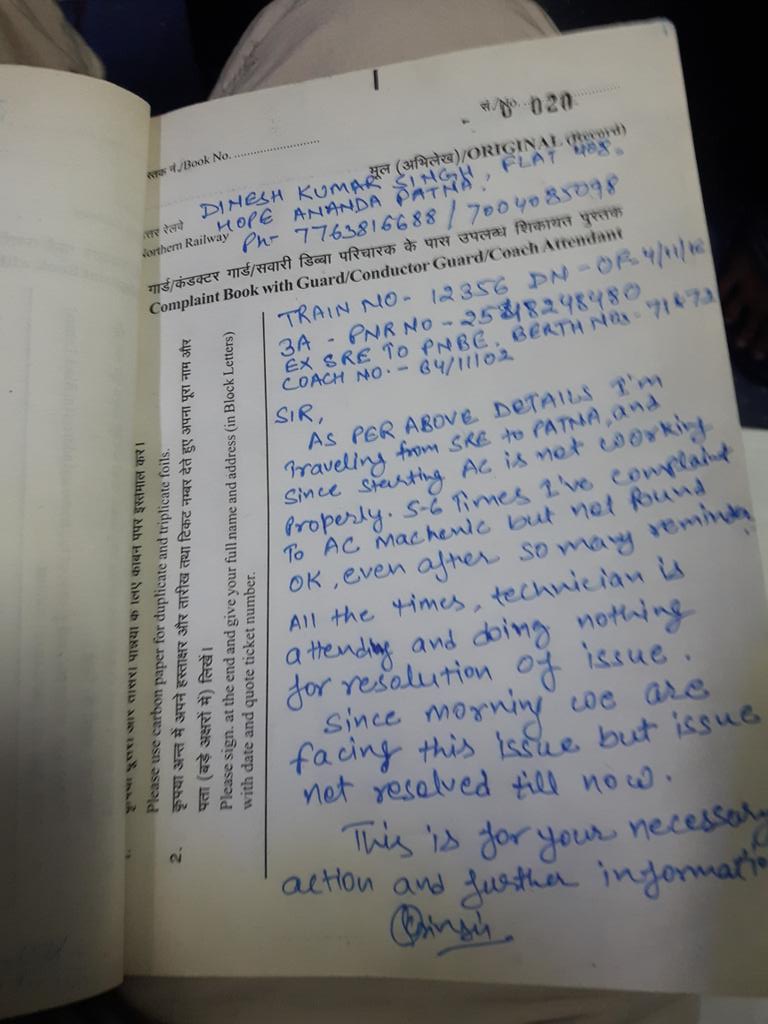 सं./No. 0 020
स्तक नं./Book No.
मूल (अभिलेख)/ORIGINAL (Record)
DINESH KUMAR SINGH, FLAT 408.
त्तर रेलवे HOPE ANANDA PATNA.
Northern Railway Ph- 7763816688 / 7004085098
गार्ड/कंडक्टर गार्ड/सवारी डिब्बा परिचारक के पास उपलब्ध शिकायत पुस्तक
Complaint Book with Guard/Conductor Guard/Coach Attendant
TRAIN NO- 12356 DN - OF- 4/11/18
3A - PNR NO - 8248480
EX SRE TO PNBE. BERTH NOs- 71&72
COACH NO. - B4/11102
SIR,
AS PER ABOVE DETAILS I'm
Traveling from SRE to PATNA, and
Since starting AC is not working
Properly. 5-6 Times I've complaint
To AC Machenic but not found
OK, even after so many reminder
All the times, technician is
attending and doing nothing
for resolution of issue.
Since morning we are
facing this issue but issue
not resolved till now.
This is for your necessary
action and further informatio
Please use carbon paper for duplicate and triplicate foils.
2. कृपया अन्त में अपने हस्ताक्षर और तारीख तथा टिकट नम्बर देते हुए अपना पूरा नाम और
पता (बड़े अक्षरों में) लिखें।
Please sign. at the end and give your full name and address (in Block Letters)
with date and quote ticket number.